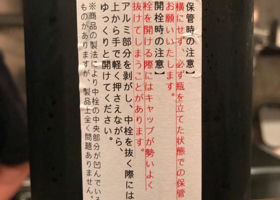 【保管時の注意】
横にせず、必ず瓶を立てた状態での保管
お願いいたします。
【開栓時の注意】
栓を開ける際にはキャップが勢いよく
抜けてしまうことがあります。
アルミ部分を剥がし、中栓を抜く際には
上から手で軽く押さえながら、
ゆっくりと開けてください。
※商品の製法により中栓の中央部分が凹んでいる
ものがありますが、製品上全く問題ありません